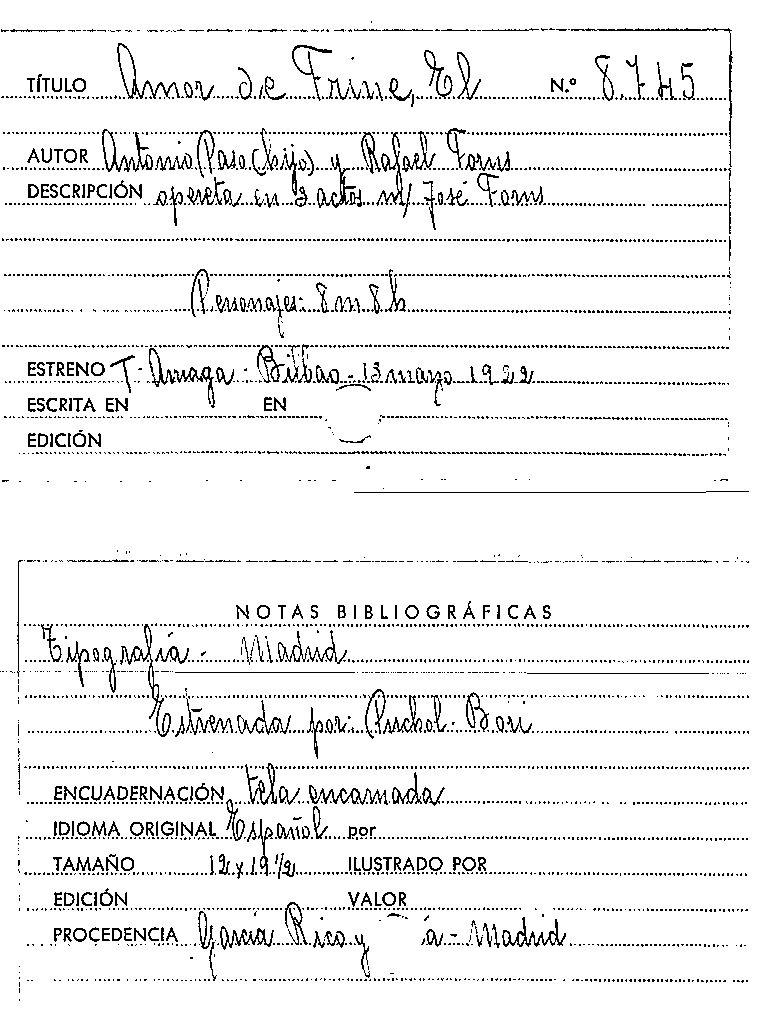 TÍTULO Amor de Frine, El N.º 8.745
AUTOR Antonio Paso (hijo) y Rafael Forns
DESCRIPCIÓN opereta en 2 actos m/ José Forns
Personajes: 8 m 8 h
ESTRENO T. Arriaga - Bilbao - 13 marzo 1922
ESCRITA EN EN
EDICIÓN
NOTAS BIBLIOGRÁFICAS
Tipografía - Madrid
Estrenada por: Puchol - Bori
ENCUADERNACIÓN tela encarnada
IDIOMA ORIGINAL Español por
TAMAÑO 12 x 19 1/2 ILUSTRADO POR
EDICIÓN VALOR
PROCEDENCIA García Rico y a - Madrid